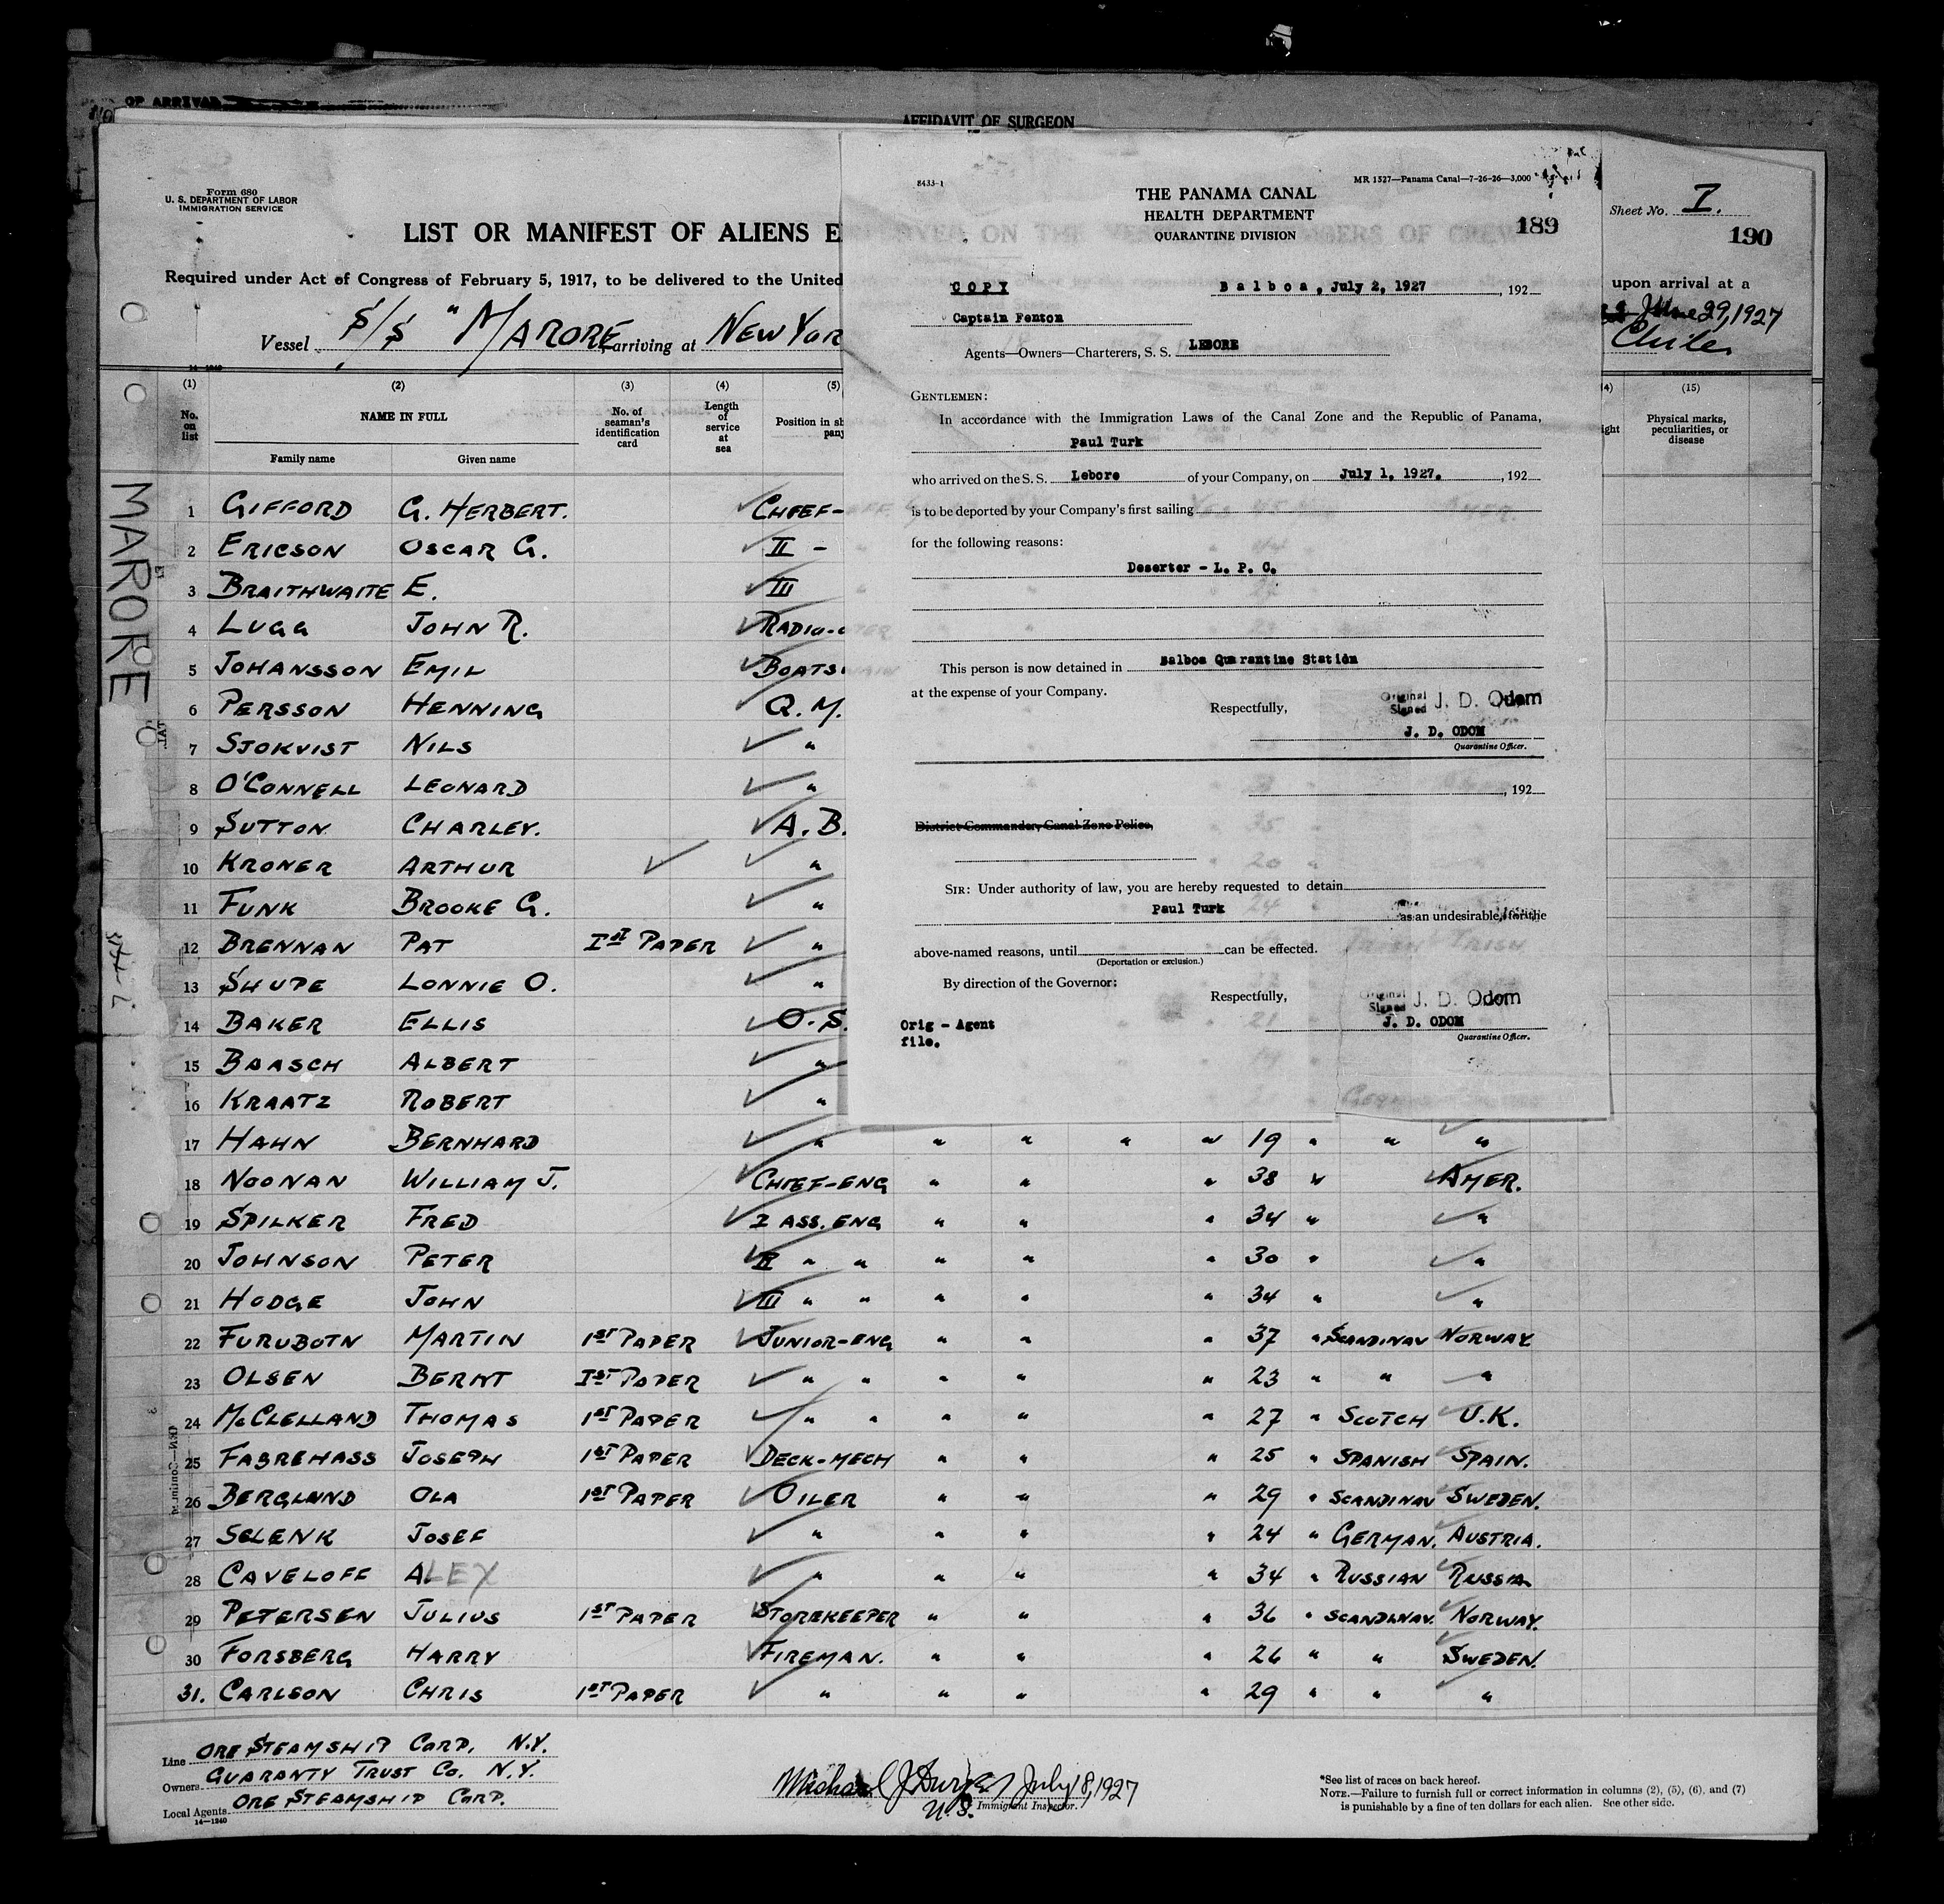 OF ARRIVAL
AFFIDAVIT OF SURGEON
Form 680
U. S. DEPARTMENT OF LABOR
IMMIGRATION SERVICE
LIST OR MANIFEST OF ALIENS E
Required under Act of Congress of February 5, 1917, to be delivered to the United
Vessel S/S "MARORE, arriving at NEW YOR
(1) (2) (3) (4) (5)
No. on list
NAME IN FULL
Family name Given name
No. of seaman's identification card
Length of service at sea
Position in sh
pany
MARORE
8433-1
MR 1327—Panama Canal—7-26-26—3,000
THE PANAMA CANAL
HEALTH DEPARTMENT
QUARANTINE DIVISION
189
COPY
Balboa, July 2, 1927, 192
Captain Fenton
Agents—Owners—Charterers, S. S. LEBORE
GENTLEMEN:
In accordance with the Immigration Laws of the Canal Zone and the Republic of Panama,
Paul Turk
who arrived on the S. S. Lebore of your Company, on July 1, 1927. , 192
is to be deported by your Company's first sailing
for the following reasons:
Deserter - L. P. C.
This person is now detained in Balboa Quarantine Station
at the expense of your Company.
Respectfully,
Original Signed J. D. Odom
J. D. ODOM
Quarantine Officer.
, 192
District Commander, Canal Zone Police,
SIR: Under authority of law, you are hereby requested to detain
Paul Turk as an undesirable, for the
above-named reasons, until can be effected.
(Deportation or exclusion.)
By direction of the Governor:
Respectfully,
Original Signed J. D. Odom
J. D. ODOM
Quarantine Officer.
Orig - Agent
file.
Sheet No. I.
190
upon arrival at a
June 29, 1927
Chile
(15)
Physical marks, peculiarities, or disease
1 GIFFORD G. HERBERT. CHIEF-
2 ERICSON OSCAR G. II -
3 BRAITHWAITE E. III
4 LUGG JOHN R. RADIO-
5 JOHANSSON EMIL BOATS
6 PERSSON HENNING Q.M.
7 SJOKVIST NILS "
8 O'CONNELL LEONARD "
9 SUTTON CHARLEY. A.B.
10 KRONER ARTHUR "
11 FUNK BROOKE G. "
12 BRENNAN PAT Ist PAPER "
13 SHUPE LONNIE O. "
14 BAKER ELLIS O.S.
15 BAASCH ALBERT "
16 KRAATZ ROBERT "
17 HAHN BERNHARD " " " " " 19 " " "
18 NOONAN WILLIAM J. CHIEF-ENG " " " 38 " AMER.
19 SPILKER FRED I ASS. ENG " " " 34 " "
20 JOHNSON PETER II " " " " " 30 " "
21 HODGE JOHN III " " " " " 34 " "
22 FURUBOTN MARTIN 1st PAPER JUNIOR-ENG " " " 37 " SCANDINAV NORWAY
23 OLSEN BERNT Ist PAPER " " " " " 23 " " "
24 McCLELLAND THOMAS 1st PAPER " " " " " 27 " SCOTCH U.K.
25 FABREHASS JOSEPH 1st PAPER DECK-MECH " " " 25 " SPANISH SPAIN.
26 BERGLUND OLA 1st PAPER OILER " " " 29 " SCANDINAV SWEDEN.
27 SELENK JOSEF " " " " 24 " GERMAN. AUSTRIA.
28 CAVELOFF ALEX " " " " 34 " RUSSIAN RUSSIA
29 PETERSEN JULIUS 1st PAPER STOREKEEPER " " " 36 " SCANDINAV. NORWAY.
30 FORSBERG HARRY FIREMAN. " " " 26 " " SWEDEN.
31. CARLSON CHRIS 1st PAPER " " " " 29 " " "
Line ORE STEAMSHIP CORP. N.Y.
Owners GUARANTY TRUST CO. N.Y.
Local Agents ORE STEAMSHIP CORP.
14—1240
Michael J July 18, 1927
U.S. Immigrant Inspector.
*See list of races on back hereof.
NOTE.—Failure to furnish full or correct information in columns (2), (5), (6), and (7)
is punishable by a fine of ten dollars for each alien. See other side.